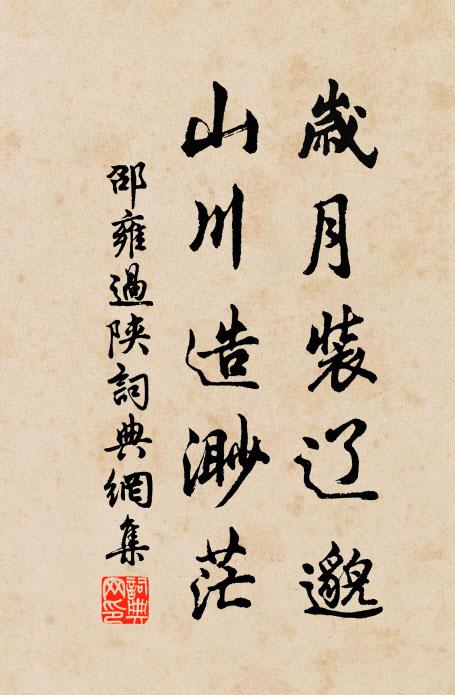 歲月裝辽邈
山川造渺茫
邵雍過陝詞典網集
詞典網印